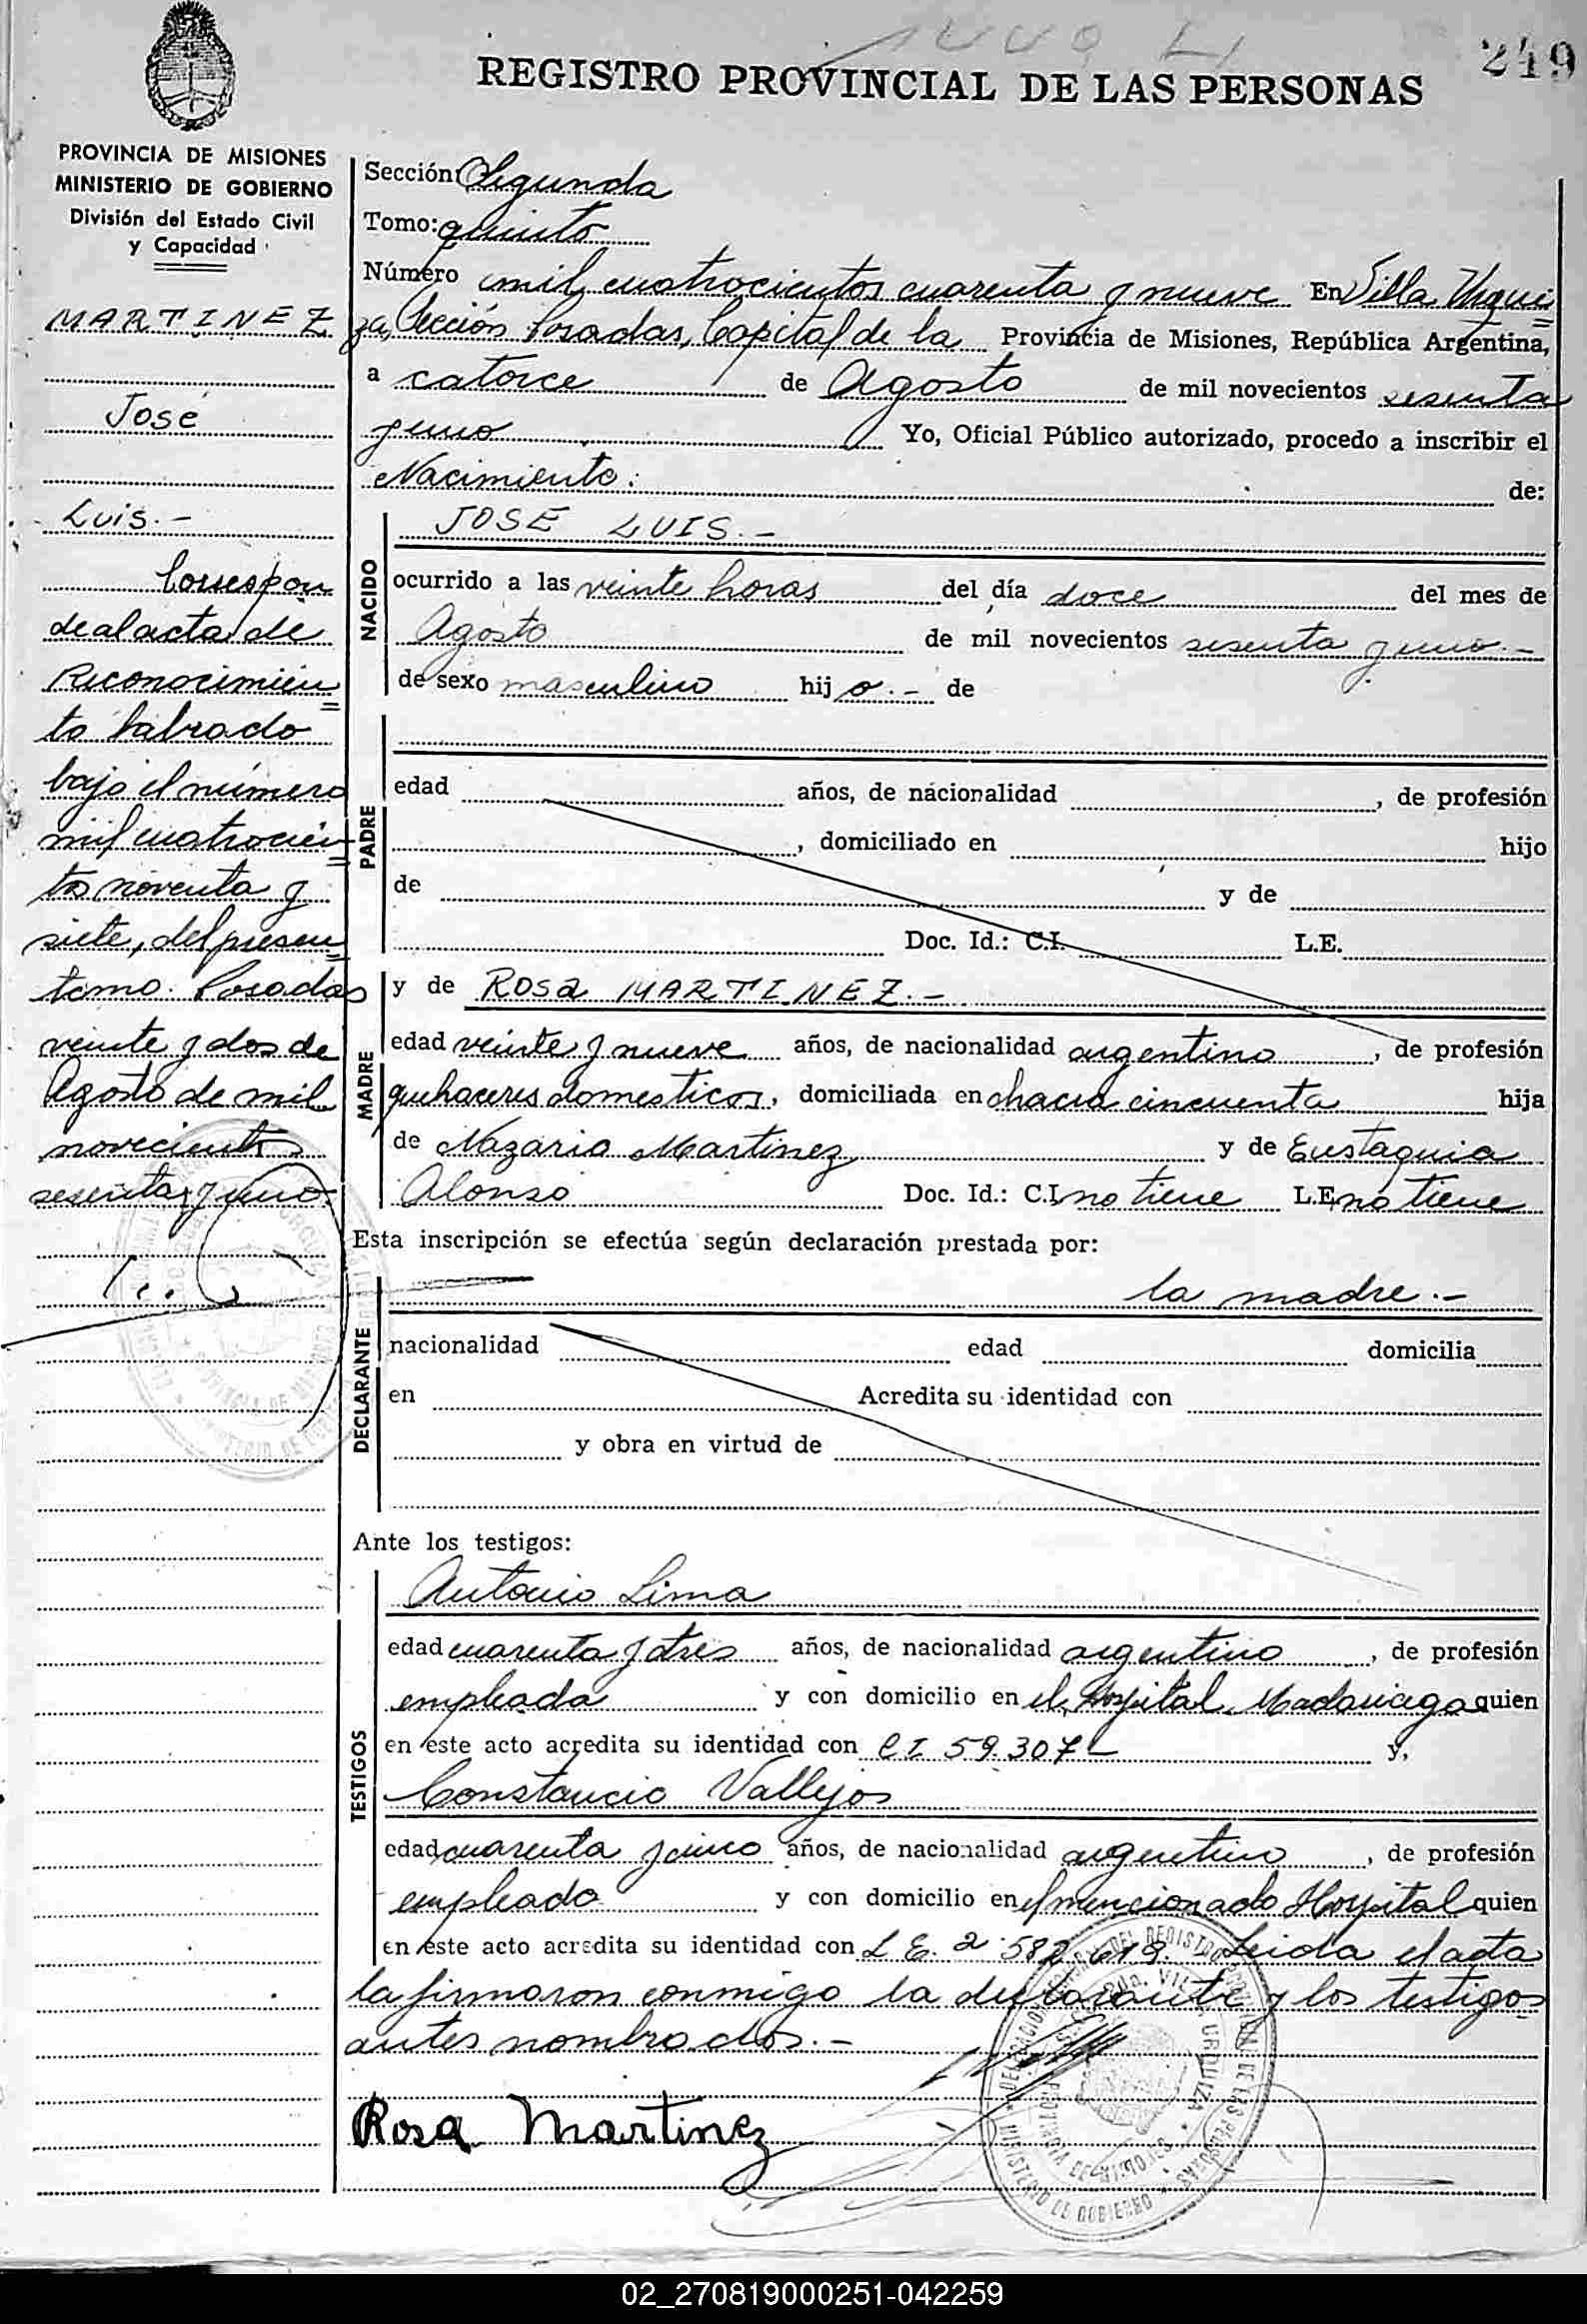 249
REGISTRO PROVINCIAL DE LAS PERSONAS
PROVINCIA DE MISIONES
MINISTERIO DE GOBIERNO
División del Estado Civil
y Capacidad
MARTINEZ
José
Luis.-
Correspon
de al acta de
Reconocimien=
to labrado
bajo el número
mil cuatrocien=
tos noventa y
siete, del presen=
tomo. Posadas
veinte y dos de
Agosto de mil
novecientos
sesenta y uno
Sección: Segunda
Tomo: quinto
Número mil cuatrocientos cuarenta y nueve En Villa Urqui=
za, Sección Posadas, Capital de la Provincia de Misiones, República Argentina,
a catorce de Agosto de mil novecientos sesenta
y uno Yo, Oficial Público autorizado, procedo a inscribir el
Nacimiento: de:
NACIDO
JOSE LUIS.-
ocurrido a las veinte horas del día doce del mes de
Agosto de mil novecientos sesenta y uno.-
de sexo masculino hij o.- de
PADRE
edad años, de nacionalidad , de profesión
, domiciliado en hijo
de y de
Doc. Id.: C.I. L.E.
MADRE
y de ROSA MARTINEZ.-
edad veinte y nueve años, de nacionalidad argentina , de profesión
quehaceres domesticos, domiciliada en chacra cincuenta hija
de Nazario Martinez y de Eustaquia
Alonso Doc. Id.: C.I. no tiene L.E. no tiene
Esta inscripción se efectúa según declaración prestada por:
la madre.-
DECLARANTE
nacionalidad edad domicilia
en Acredita su identidad con
y obra en virtud de
Ante los testigos:
TESTIGOS
Antonio Lima
edad cuarenta y tres años, de nacionalidad argentino , de profesión
empleado y con domicilio en el Hospital Madariaga quien
en este acto acredita su identidad con CI 59.307 y,
Constancio Vallejos
edad cuarenta y cinco años, de nacionalidad argentino , de profesión
empleado y con domicilio en el mencionado Hospital quien
en este acto acredita su identidad con L.E. 2.582.619. Leida el acta
la firmaron conmigo la declarante y los testigos
antes nombrados.-
Rosa Martinez
02_270819000251-042259